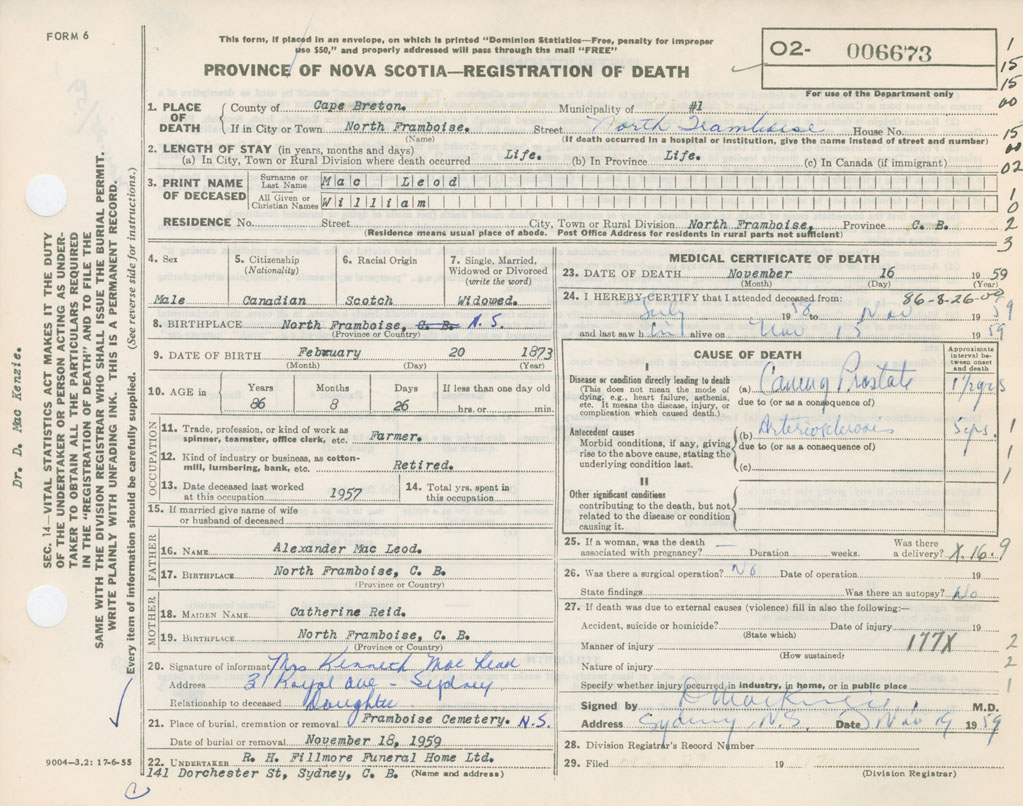 FORM 6
This form, if placed in an envelope, on which is printed "Dominion Statistics—Free, penalty for improper
use $50," and properly addressed will pass through the mail "FREE"
PROVINCE OF NOVA SCOTIA—REGISTRATION OF DEATH
O2- 006673
For use of the Department only
1. PLACE OF DEATH County of Cape Breton. Municipality of #1
If in City or Town North Framboise. Street North Framboise House No.
(Name) (If death occurred in a hospital or institution, give the name instead of street and number)
2. LENGTH OF STAY (in years, months and days)
(a) In City, Town or Rural Division where death occurred Life. (b) In Province Life. (c) In Canada (if immigrant)
3. PRINT NAME OF DECEASED
Surname or Last Name Mac Leod
All Given or Christian Names William
RESIDENCE No. Street City, Town or Rural Division North Framboise, Province C. B.
(Residence means usual place of abode. Post Office Address for residents in rural parts not sufficient)
4. Sex Male
5. Citizenship (Nationality) Canadian
6. Racial Origin Scotch
7. Single, Married, Widowed or Divorced (write the word) Widowed.
8. BIRTHPLACE North Framboise, C. B. N.S.
(Province or Country)
9. DATE OF BIRTH February 20 1873
(Month) (Day) (Year)
10. AGE in Years Months Days If less than one day old
86 8 26 hrs. or min.
OCCUPATION
11. Trade, profession, or kind of work as
spinner, teamster, office clerk, etc. Farmer.
12. Kind of industry or business, as cotton-
mill, lumbering, bank, etc. Retired.
13. Date deceased last worked
at this occupation 1957
14. Total yrs. spent in
this occupation
15. If married give name of wife
or husband of deceased
FATHER
16. NAME Alexander Mac Leod.
17. BIRTHPLACE North Framboise, C. B.
(Province or Country)
MOTHER
18. MAIDEN NAME Catherine Reid.
19. BIRTHPLACE North Framboise, C. B.
(Province or Country)
20. Signature of informant Mrs Kenneth Mac Lead
Address 31 Royal Ave - Sydney
Relationship to deceased Daughter
21. Place of burial, cremation or removal Framboise Cemetery. N.S.
Date of burial or removal November 18, 1959
22. UNDERTAKER R. H. Fillmore Funeral Home Ltd.
141 Dorchester St, Sydney, C. B. (Name and address)
MEDICAL CERTIFICATE OF DEATH
23. DATE OF DEATH November 16 1959
(Month) (Day) (Year)
86-8-26-09
24. I HEREBY CERTIFY that I attended deceased from:
July 1958 to Nov 1959
and last saw him alive on Nov 15 1959
CAUSE OF DEATH
Approximate interval between onset and death
I
Disease or condition directly leading to death
(This does not mean the mode of
dying, e.g., heart failure, asthenia,
etc. It means the disease, injury, or
complication which caused death.)
(a) Prostate 1½yrs
due to (or as a consequence of)
Antecedent causes
Morbid conditions, if any, giving
rise to the above cause, stating the
underlying condition last.
(b) Arteriosclerosis 5yrs.
due to (or as a consequence of)
(c)
II
Other significant conditions
contributing to the death, but not
related to the disease or condition
causing it.
25. If a woman, was the death
associated with pregnancy? — Duration weeks. Was there
a delivery? X.16.9
26. Was there a surgical operation? No Date of operation 19
State findings Was there an autopsy? No
27. If death was due to external causes (violence) fill in also the following:—
Accident, suicide or homicide? Date of injury 19
(State which)
Manner of injury 177X
(How sustained?)
Nature of injury
Specify whether injury occurred in industry, in home, or in public place
Signed by M.D.
Address Sydney N.S. Date Nov 19 1959
28. Division Registrar's Record Number
29. Filed 19
(Division Registrar)
1
15
15
00
15
00
02
1
0
2
3
1
1
1
2
2
1
Dr. D. Mac Kenzie.
SEC. 14—VITAL STATISTICS ACT MAKES IT THE DUTY
OF THE UNDERTAKER OR PERSON ACTING AS UNDER-
TAKER TO OBTAIN ALL THE PARTICULARS REQUIRED
IN THE "REGISTRATION OF DEATH" AND TO FILE THE
SAME WITH THE DIVISION REGISTRAR WHO SHALL ISSUE THE BURIAL PERMIT.
WRITE PLAINLY WITH UNFADING INK. THIS IS A PERMANENT RECORD.
Every item of information should be carefully supplied. (See reverse side for instructions.)
9004—3.2: 17-6-55